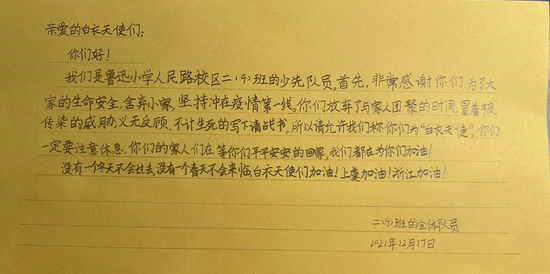 亲爱的白衣天使们:
你们好!
我们是鲁迅小学人民路校区二(9)班的少先队员。首先,非常感谢你们为了大
家的生命安全,舍弃小家,坚持冲在疫情第一线。你们放弃了与家人团聚的时间,冒着被
传染的威胁义无反顾,不计生死的写下请战书。所以请允许我们称你们为“白衣天使”。你们
一定要注意休息,你们的家人们在等你们平平安安的回家,我们都在为你们加油!
没有一个冬天不会过去,没有一个春天不会来临白衣天使们加油!上虞加油!浙江加油!
二(9)班的全体队员
2021年12月17日